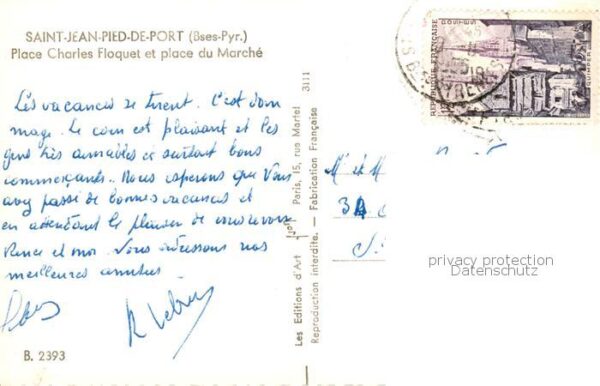 SAINT-JEAN-PIED-DE-PORT (Bses-Pyr.)
Place Charles Floquet et place du Marché
Les vacances se tirent. C'est dom
mage. Le coin est plaisant et les
gens très aimables et surtout bons
commerçants. Nous esperons que Vous
avez passé de bonnes vacances et
en attendant le plaisir de vous revoir
et moi. Vous adressons nos
meilleures amitiés
B. 2393
3111
Les Editions d'Art Paris, 15, rue Martel
Reproduction interdite. - Fabrication Française
M' et M
3
REPUBLIQUE FRANÇAISE
POSTES
QUIMPER
privacy protection
Datenschutz